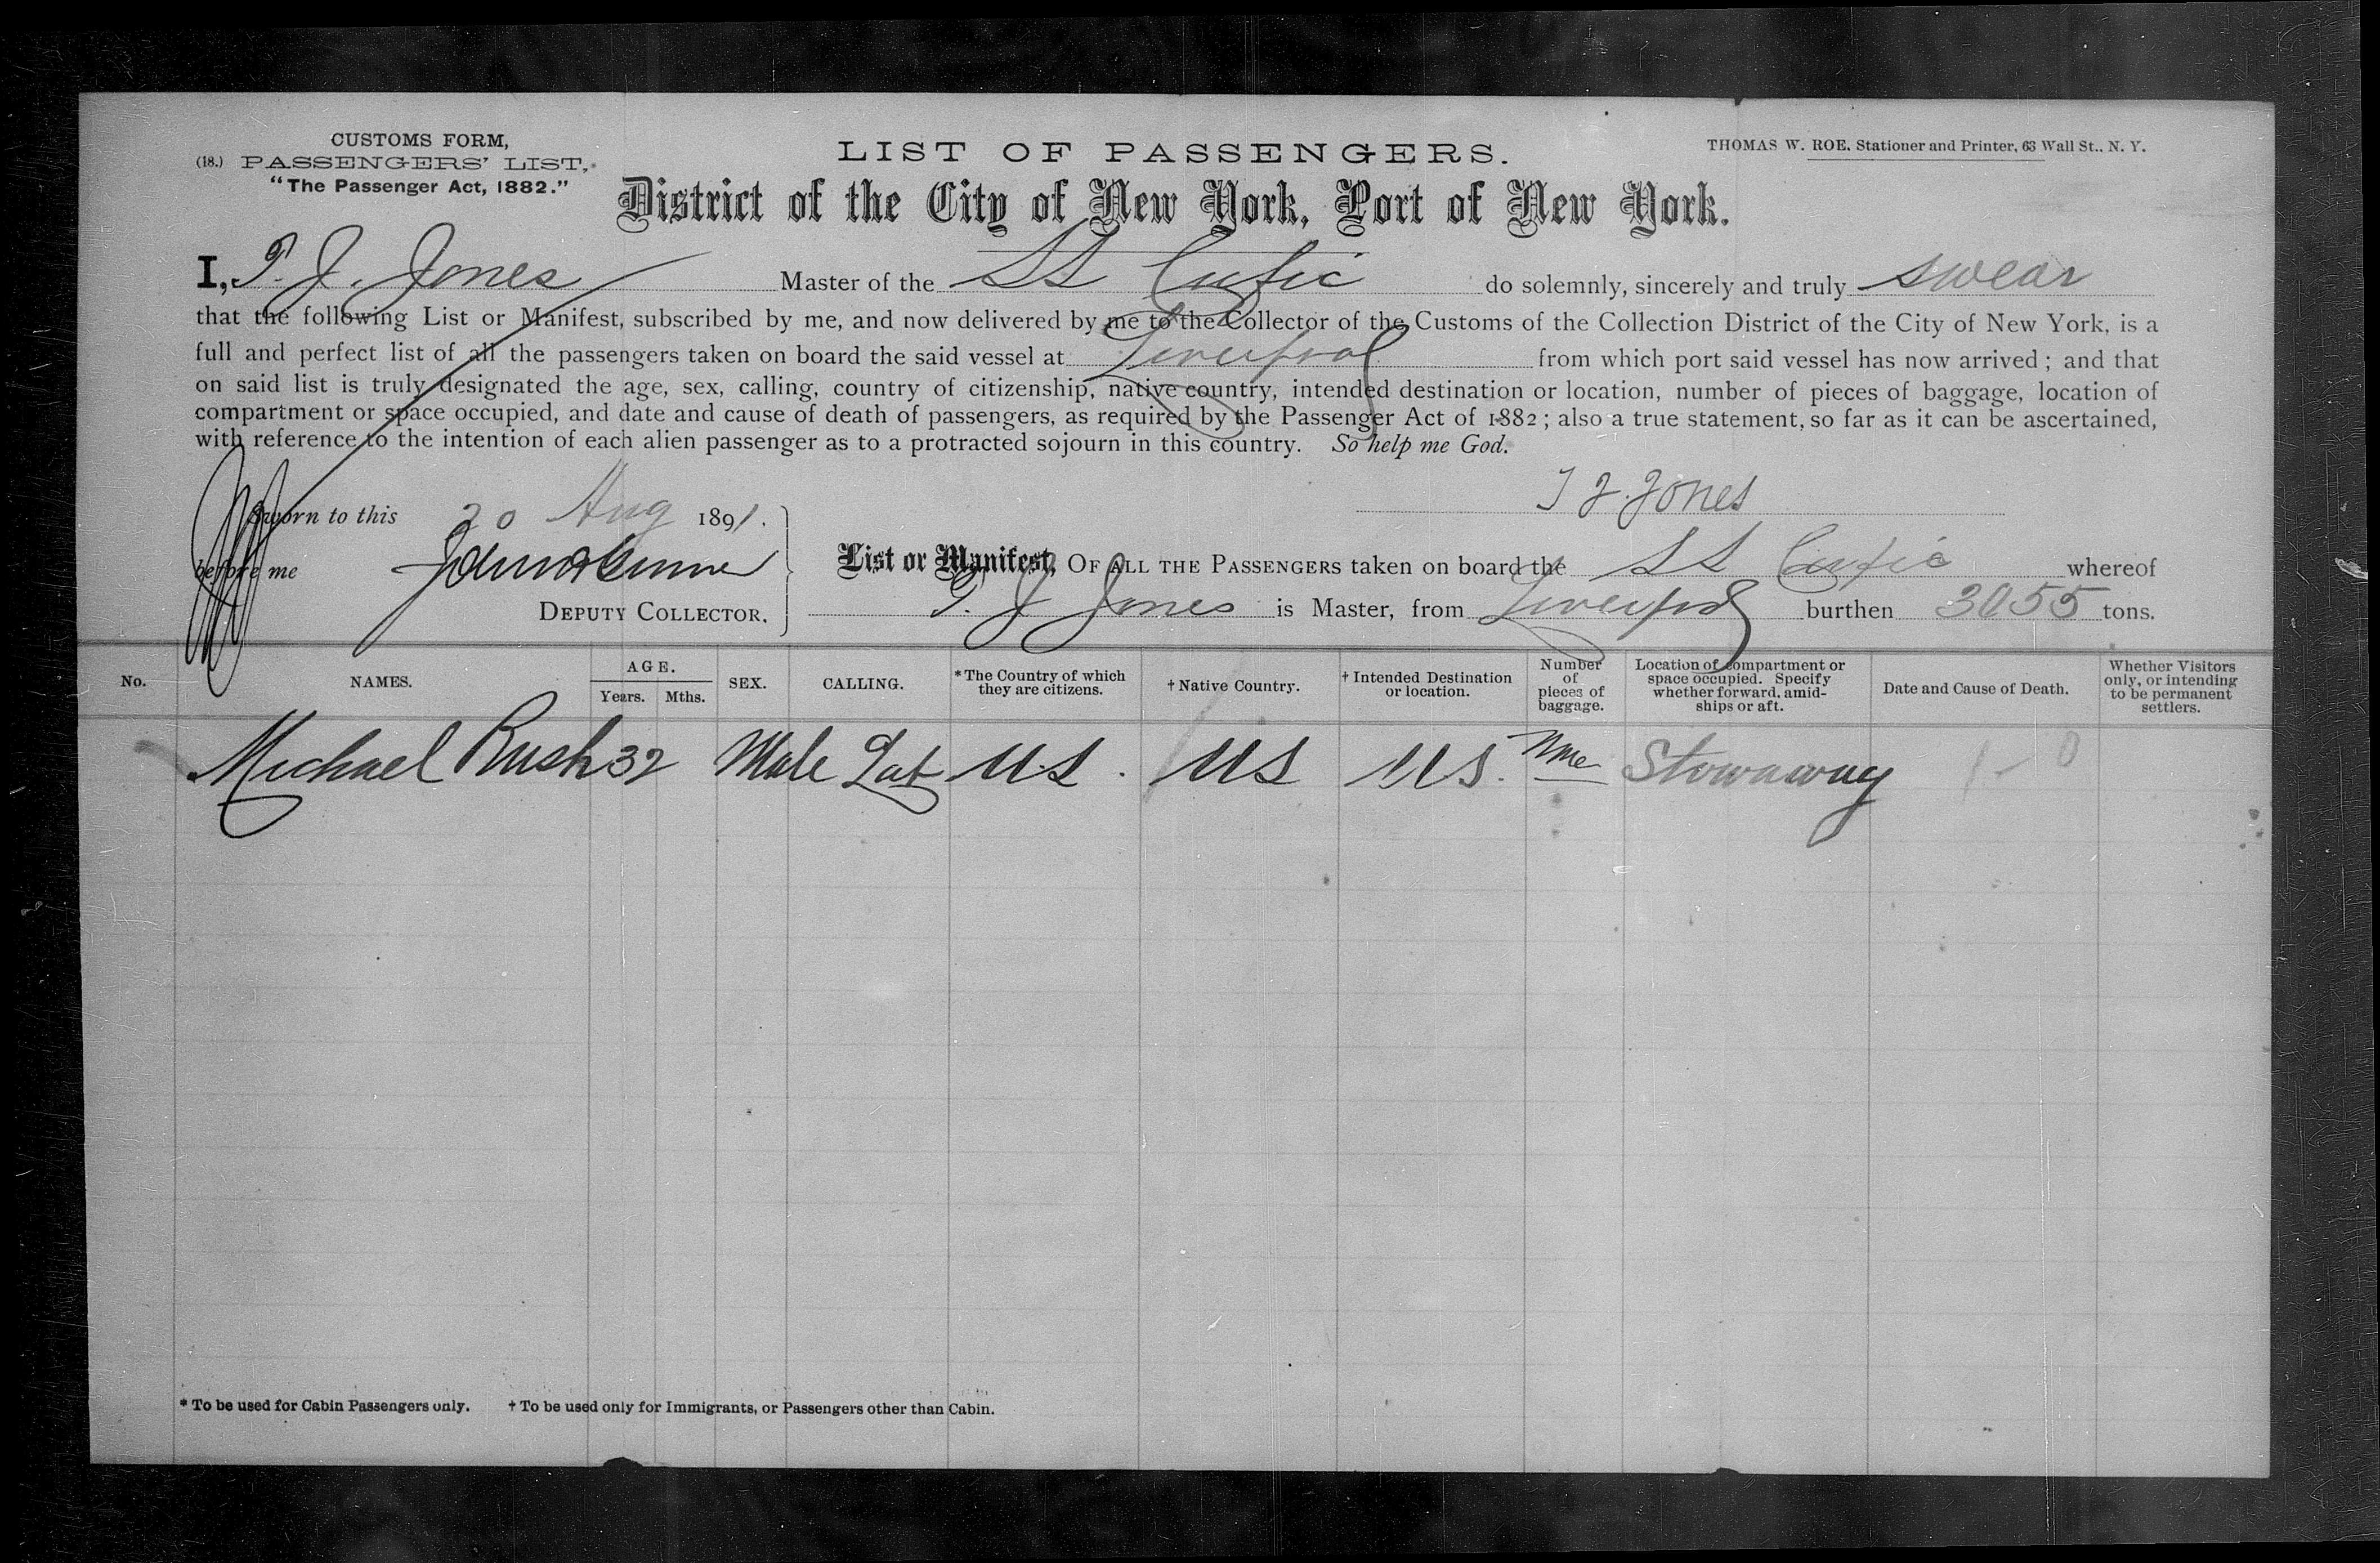 CUSTOMS FORM,
(18.) PASSENGERS' LIST,
"The Passenger Act, 1882."
LIST OF PASSENGERS.
THOMAS W. ROE, Stationer and Printer, 63 Wall St., N. Y.
District of the City of New York, Port of New York.
I, T. J. Jones Master of the SS Cufic do solemnly, sincerely and truly swear
that the following List or Manifest, subscribed by me, and now delivered by me to the Collector of the Customs of the Collection District of the City of New York, is a
full and perfect list of all the passengers taken on board the said vessel at Liverpool from which port said vessel has now arrived; and that
on said list is truly designated the age, sex, calling, country of citizenship, native country, intended destination or location, number of pieces of baggage, location of
compartment or space occupied, and date and cause of death of passengers, as required by the Passenger Act of 1882; also a true statement, so far as it can be ascertained,
with reference to the intention of each alien passenger as to a protracted sojourn in this country. So help me God.
T J. Jones
Sworn to this 20 Aug 1891.
before me
DEPUTY COLLECTOR.
List or Manifest, OF ALL THE PASSENGERS taken on board the SS Cufic whereof
T. J Jones is Master, from Liverpool burthen 3055 tons.
No.
NAMES.
AGE.
Years. Mths.
SEX.
CALLING.
*The Country of which
they are citizens.
† Native Country.
† Intended Destination
or location.
Number
of
pieces of
baggage.
Location of compartment or
space occupied. Specify
whether forward, amid-
ships or aft.
Date and Cause of Death.
Whether Visitors
only, or intending
to be permanent
settlers.
Michael Rush 32 Male Lab U.S. US U.S. None Stowaway
* To be used for Cabin Passengers only. † To be used only for Immigrants, or Passengers other than Cabin.